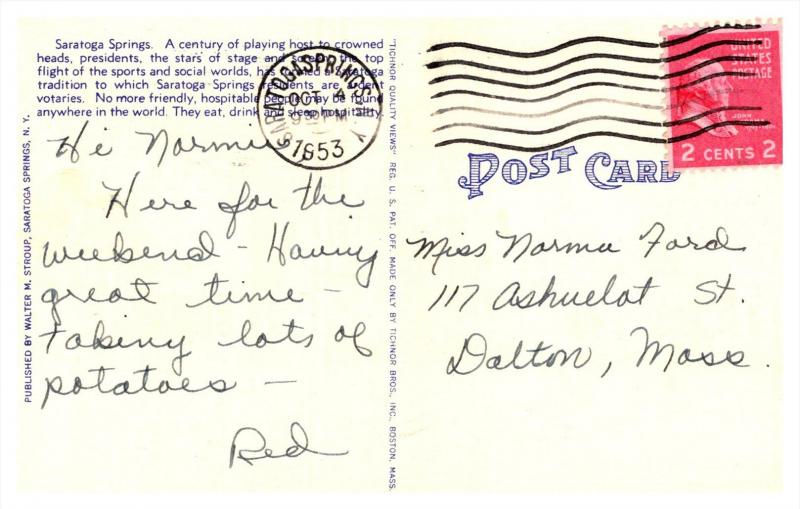 Saratoga Springs. A century of playing host to crowned
heads, presidents, the stars of stage and screen, the top
flight of the sports and social worlds, has formed a Saratoga
tradition to which Saratoga Springs residents are ardent
votaries. No more friendly, hospitable people may be found
anywhere in the world. They eat, drink and sleep hospitality.
Hi Normie
Here for the
weekend - Having
great time -
taking lots of
potatoes -
Red
PUBLISHED BY WALTER M. STROUP, SARATOGA SPRINGS, N. Y.
"TICHNOR QUALITY VIEWS" REG. U. S. PAT. OFF. MADE ONLY BY TICHNOR BROS., INC., BOSTON, MASS.
SARATOGA SPRINGS
OCT 4
1953
UNITED
STATES
POSTAGE
JOHN
2 CENTS 2
POST CARD
Miss Norma Ford
117 Ashuelot St.
Dalton, Mass.